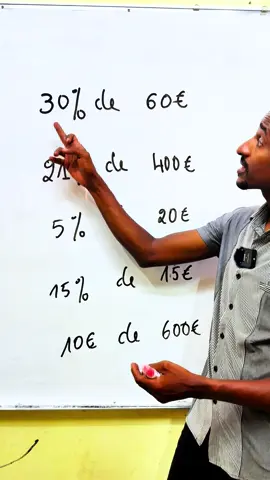 30% de 60€
21% de 400€
5% 20€
15% de 15€
10€ de 600€